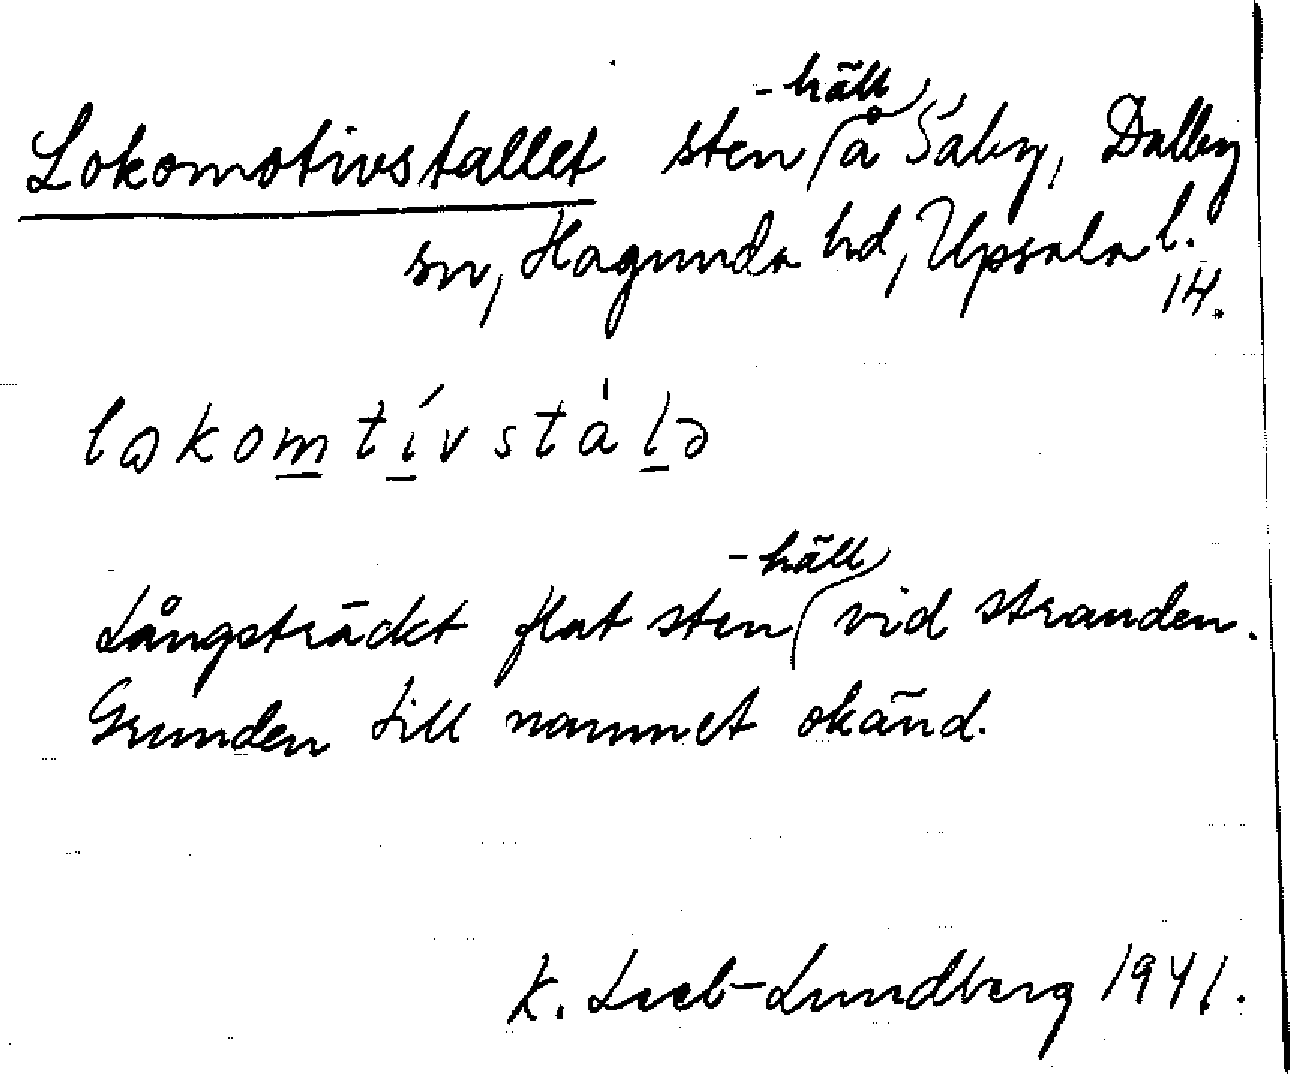 Lokomotivstallet sten-häll å Säby, Dalby
sn, Hagunda hd, Upsala l.
14.
lɷkom̲tí̲vstàl̲ə
Långsträckt flat sten-häll vid stranden.
Grunden till namnet okänd.
K. Leeb-Lundberg 1941.